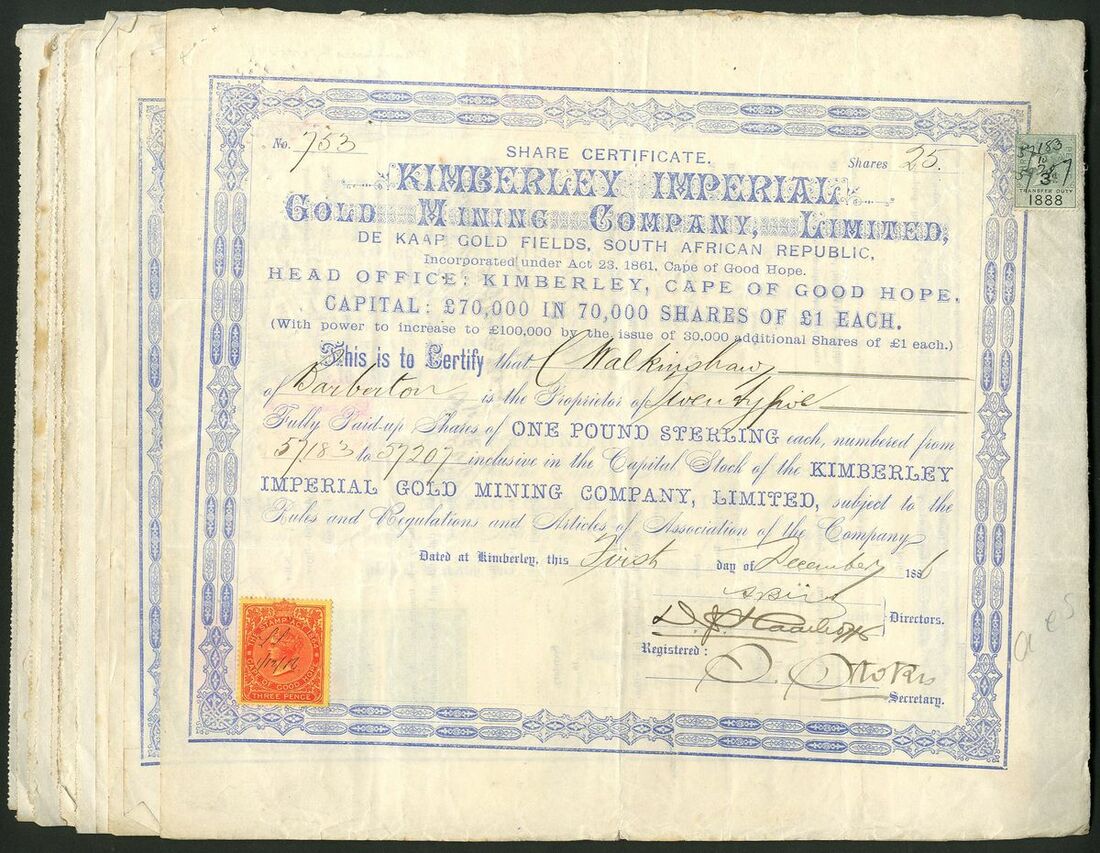 No. 753
SHARE CERTIFICATE.
Shares 25.
KIMBERLEY IMPERIAL
GOLD MINING COMPANY, LIMITED,
DE KAAP GOLD FIELDS, SOUTH AFRICAN REPUBLIC,
Incorporated under Act 23, 1861, Cape of Good Hope.
HEAD OFFICE: KIMBERLEY, CAPE OF GOOD HOPE.
CAPITAL: £70,000 IN 70,000 SHARES OF £1 EACH.
(With power to increase to £100,000 by the issue of 30,000 additional Shares of £1 each.)
This is to Certify that C Walkinshaw
of Barberton is the Proprietor of Twenty five
Fully Paid-up Shares of ONE POUND STERLING each, numbered from
57183 to 57207 inclusive in the Capital Stock of the KIMBERLEY
IMPERIAL GOLD MINING COMPANY, LIMITED, subject to the
Rules and Regulations and Articles of Association of the Company
Dated at Kimberley, this First day of December 1886
Directors.
Registered:
Secretary.
CAPE OF GOOD HOPE
THREE PENCE
3
TRANSFER DUTY
1888